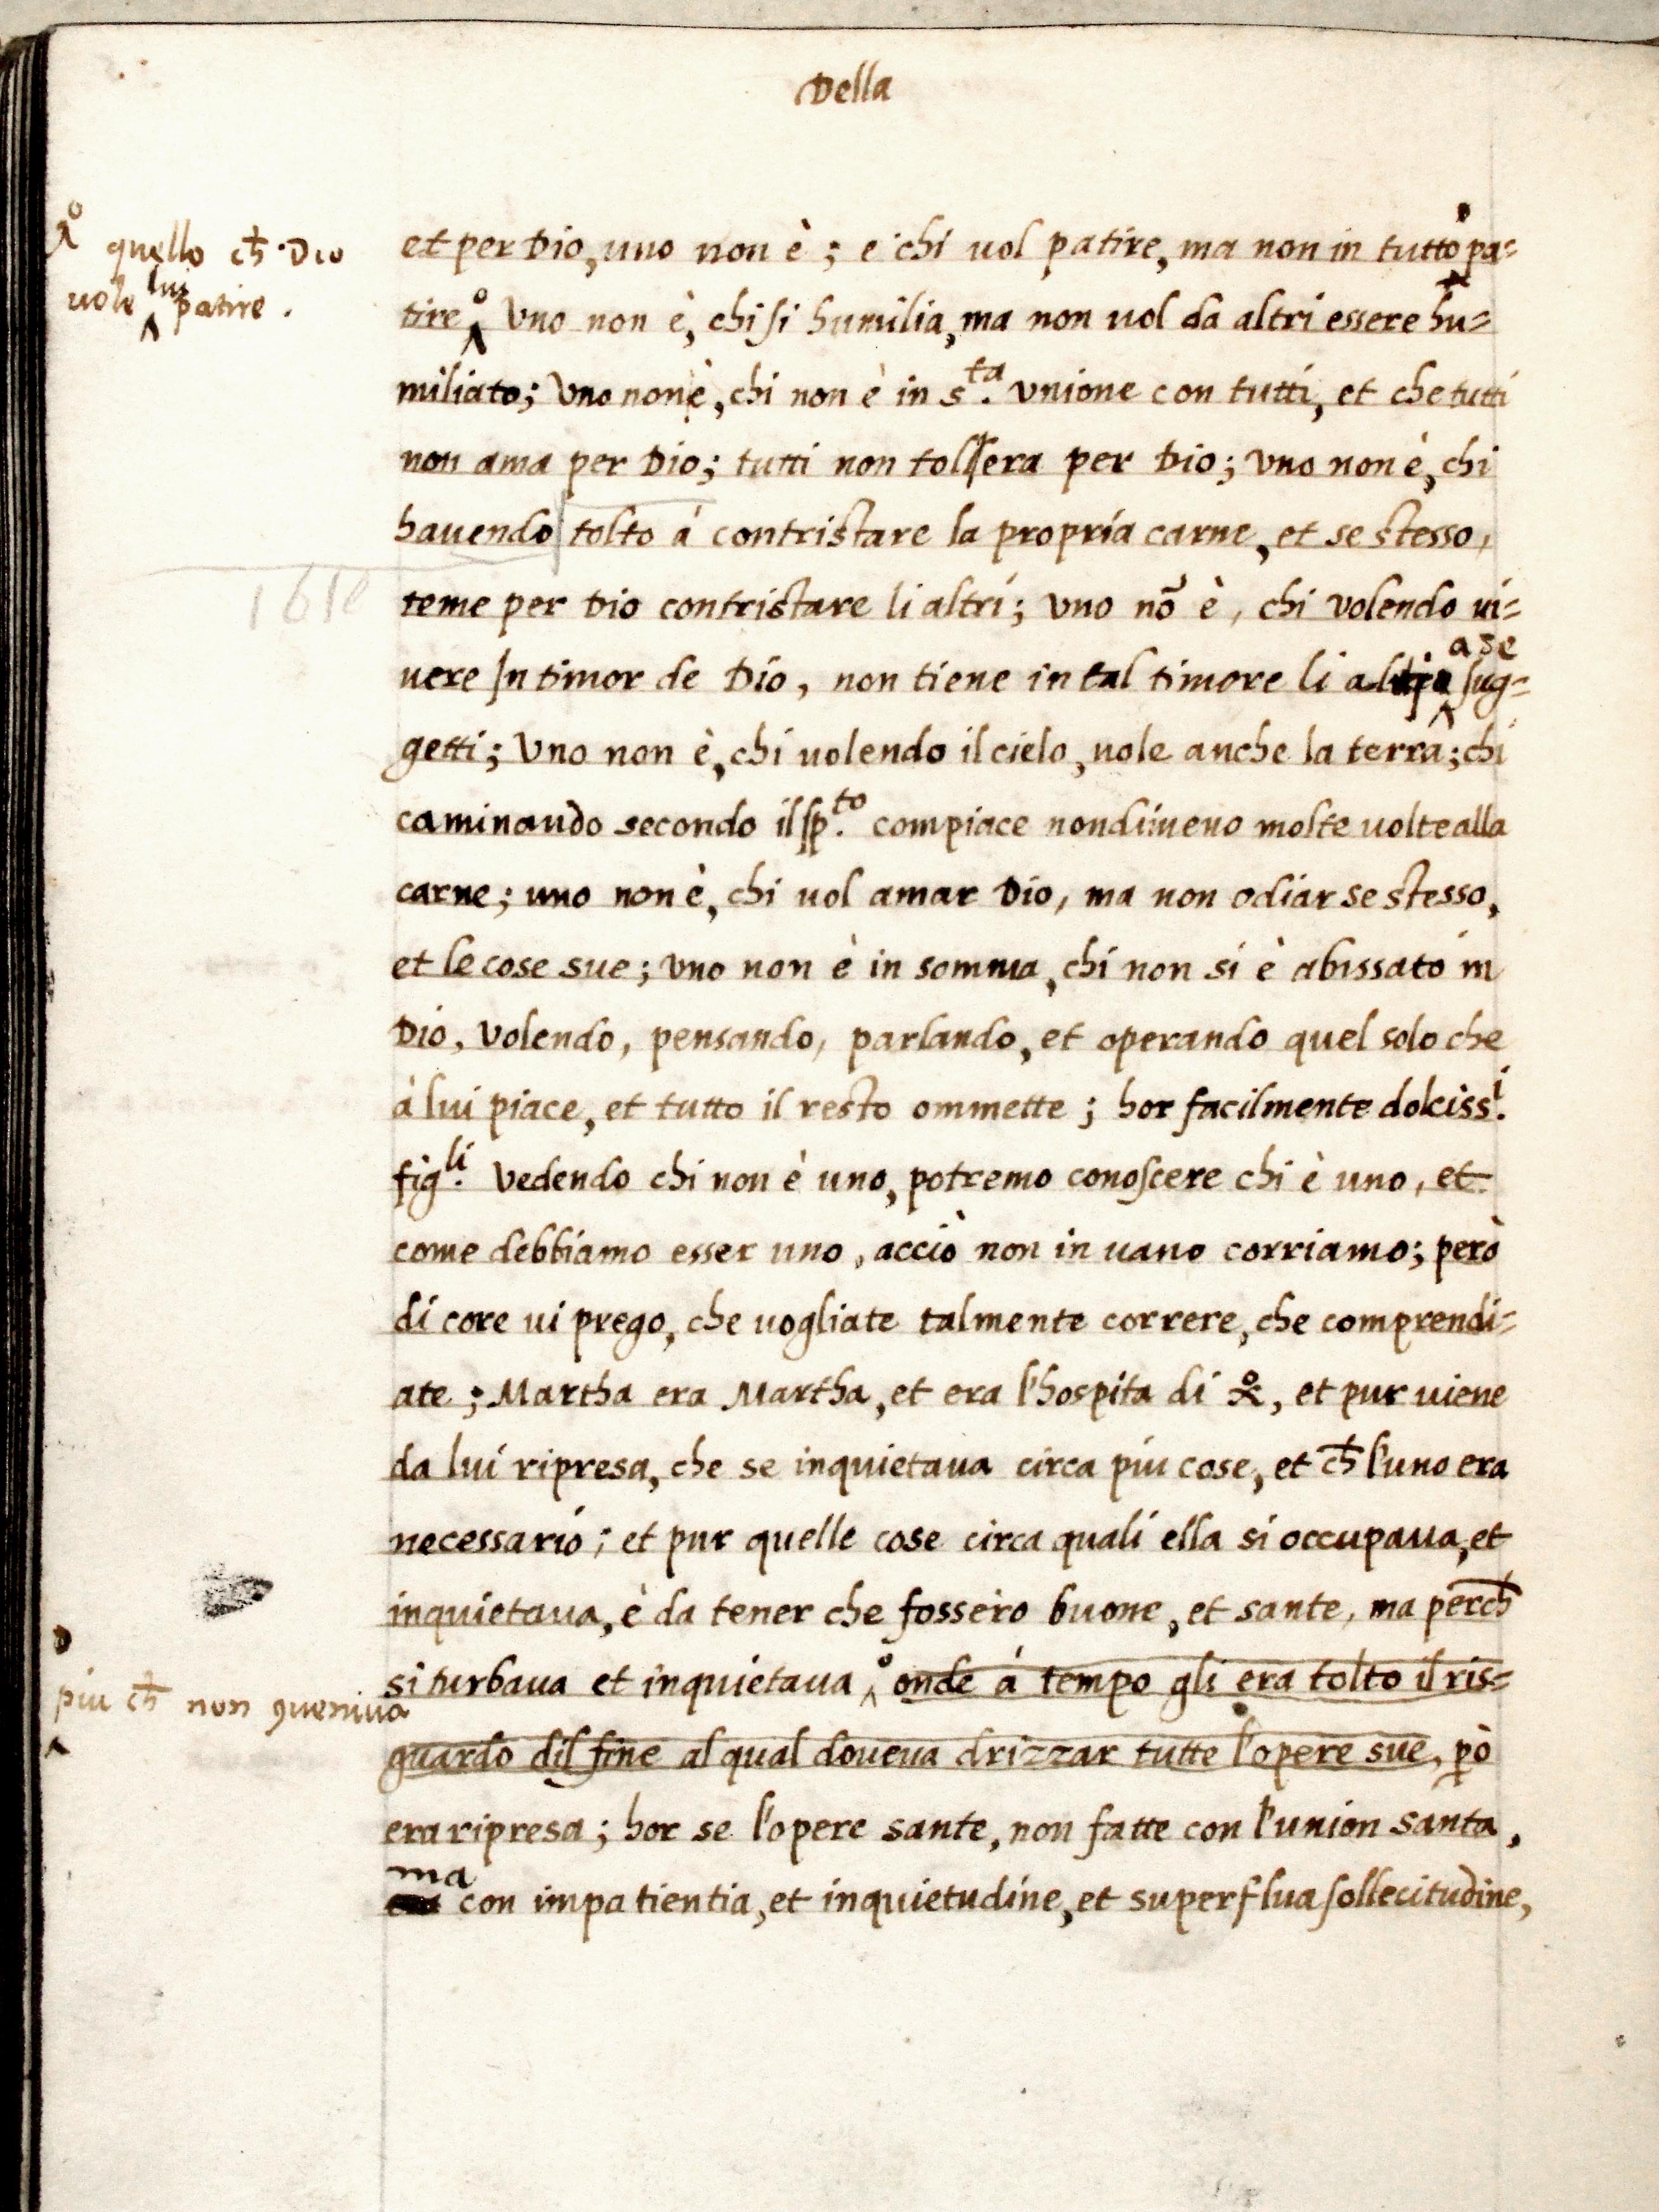 Della
et per Dio, uno non è; e chi vol patire, ma non in tutto pa=
tire Uno non è, chi si humilia, ma non vol da altri essere hu=
miliato; Uno non è, chi non è in s.ta unione con tutti, et che tutti
non ama per Dio; tutti non tollera per Dio; uno non è, chi
havendo tolto á contristare la propria carne, et se stesso,
teme per Dio contristare li altri; uno nõ è, chi volendo ui=
uere In timor de Dio, non tiene in tal timore li a se sug=
getti; Uno non è, chi uolendo il cielo, uole anche la terra; chi
caminando secondo il sp.to compiace nondimeno molte uolte alla
carne; uno non è, chi uol amar Dio, ma non odiar se stesso,
et le cose sue; uno non è in somma, chi non si è abissato in
Dio, volendo, pensando, parlando, et operando quel solo che
à lui piace, et tutto il resto ommette; hor facilmente dolciss.i
fig.li vedendo chi non è uno, potremo conoscere chi è uno, et
come debbiamo esser uno, acciò non in uano corriamo; però
di core ui prego, che uogliate talmente correre, che comprendi=
ate; Martha era Martha, et era l'hospita di , et pur uiene
da lui ripresa, che se inquietaua circa piu cose, et ch̄ l'uno era
necessario; et pur quelle cose circa quali ella si occupaua, et
inquietaua, è da tener che fossero buone, et sante, ma perch̄
si turbaua et inquietaua onde á tempo gli era tolto il ris=
guardo dil fine al qual doueua drizzar tutte l'opere sue, p̱ò
era ripresa; hor se l'opere sante, non fatte con l'union santa,
ma con impatientia, et inquietudine, et superflua sollecitudine,
quello ch̄ Dio
uole lui patire.
piu ch̄ non ꝯueniua